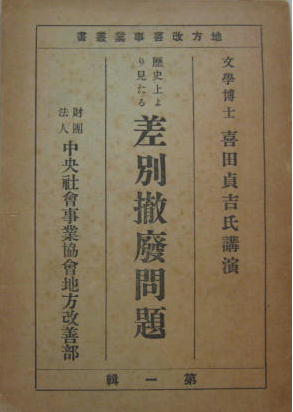 書叢業事善改方地
文學博士 喜田貞吉氏講演
歷史上より見たる
差別撤廢問題
財團法人 中央社會事業協會地方改善部
輯一第